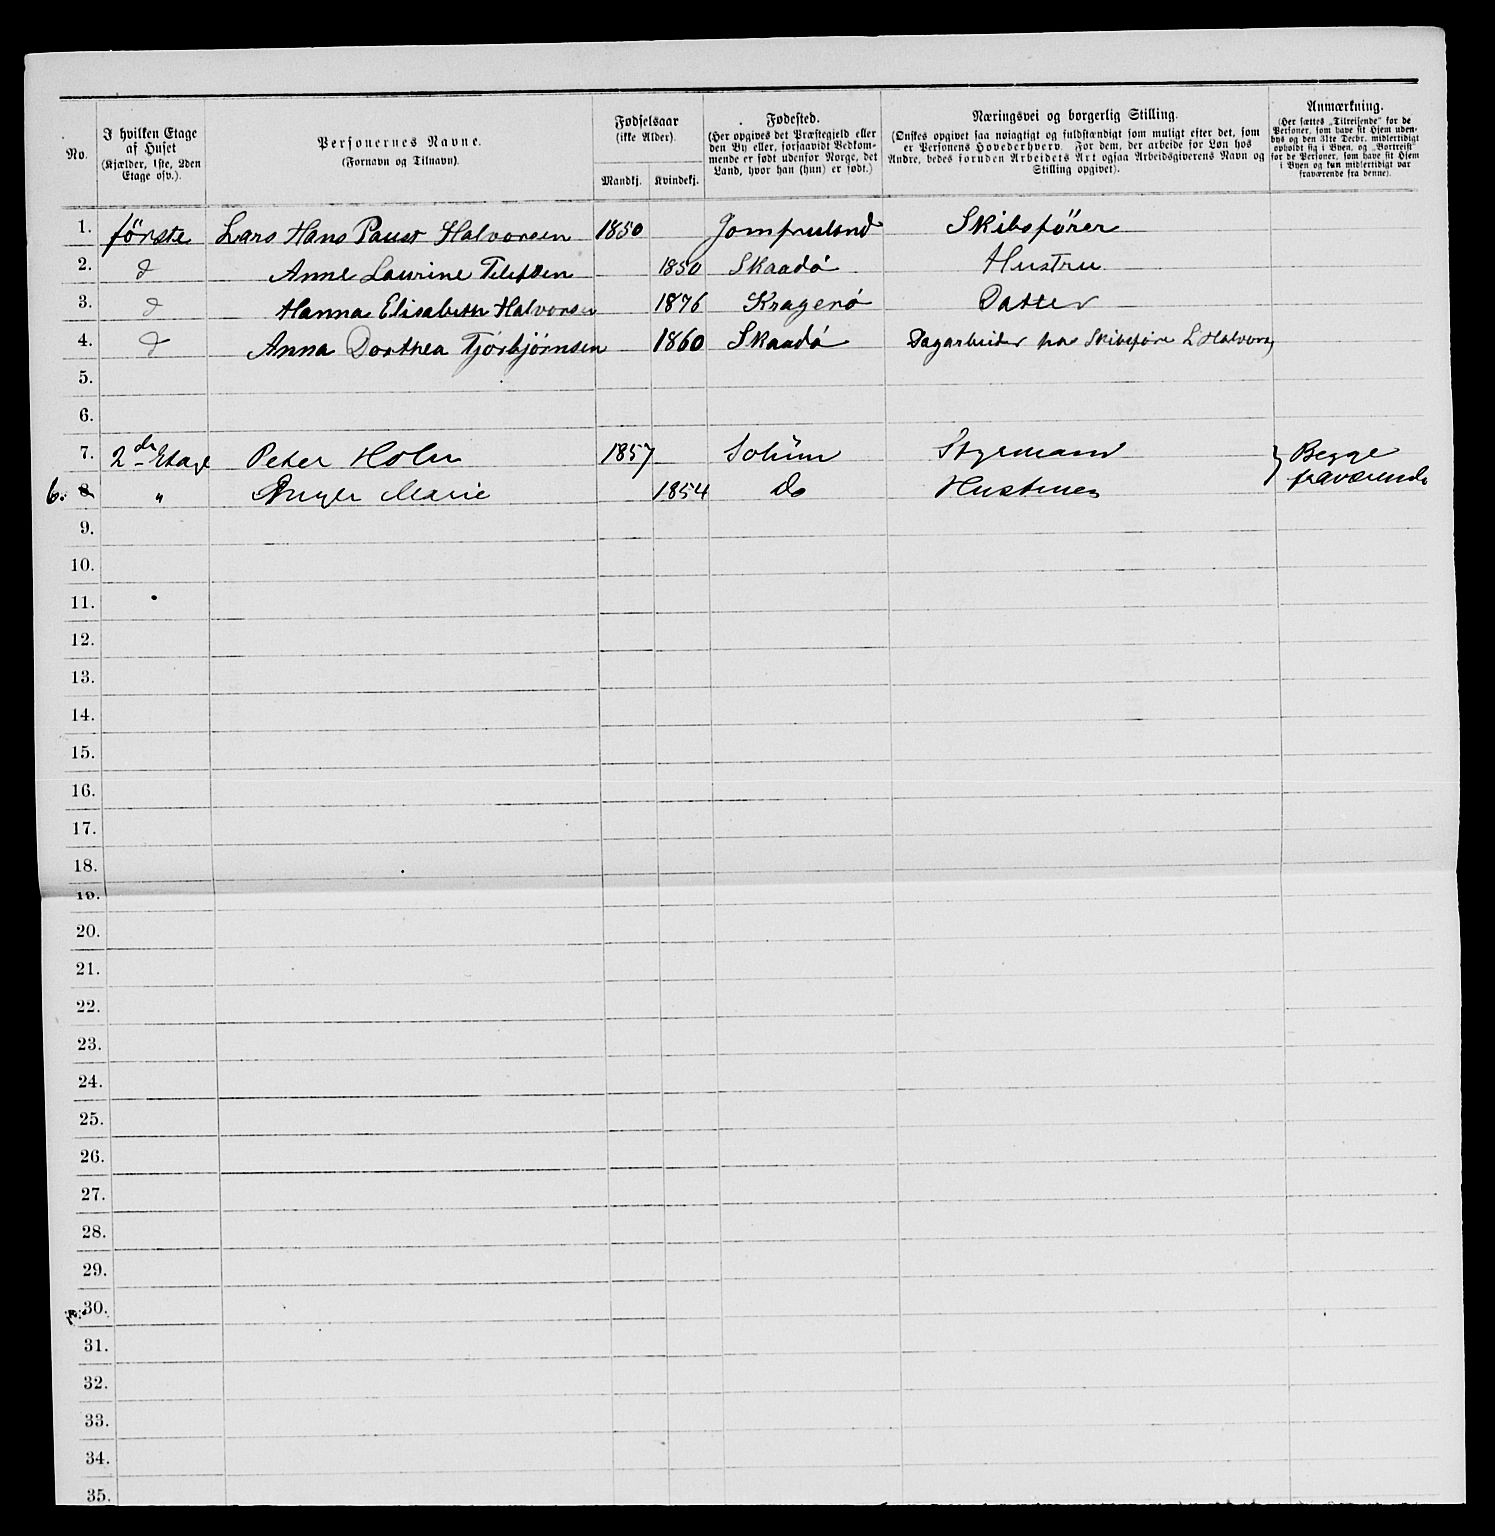 No.
I hvilken Etage
af Huset
(Kjælder, 1ste, 2den
Etage osv.).
Personernes Navne.
(Fornavn og Tilnavn).
Fødselsaar
(ikke Alder).
Mandkj.
Kvindekj.
Fødested.
(Her opgives det Præstegjeld eller
den By eller, forsaavidt Vedkom-
mende er født udenfor Norge, det
Land, hvor han (hun) er født.)
Næringsvei og borgerlig Stilling.
(Ønskes opgivet saa nøiagtigt og fuldstændigt som muligt efter det, som
er Personens Hovederhverv. For dem, der arbeide for Løn hos
Andre, bedes foruden Arbeidets Art ogsaa Arbeidsgiverens Navn og
Stilling opgivet).
Anmærkning.
(Her sættes „Tilreisende“ for de
Personer, som have sit Hjem uden-
bys og den 31te Decbr. midlertidigt
opholdt sig i Byen, og „Bortreist“
for de Personer, som have sit Hjem
i Byen og kun midlertidigt var
fraværende fra denne).
1. første Lars Hans Paust Halvorsen 1850 Jomfruland Skibsfører
2. d Anne Laurine 1850 Skaadö Hustru
3. d Hanna Elisabeth Halvorsen 1876 Kragerö Datter
4. d Anna Dorthea Tjörbjörnsen 1860 Skaadö Dagarbeider hos Skibsföre L Halvors
5.
6.
7. 2de Etage Peter Holm 1857 Solüm Styrmand Begge
6. 8. " Marie 1854 Do fraværende
9.
10.
11.
12.
13.
14.
15.
16.
17.
18.
19.
20.
21.
22.
23.
24.
25.
26.
27.
28.
29.
30.
31.
32.
33.
34.
35.